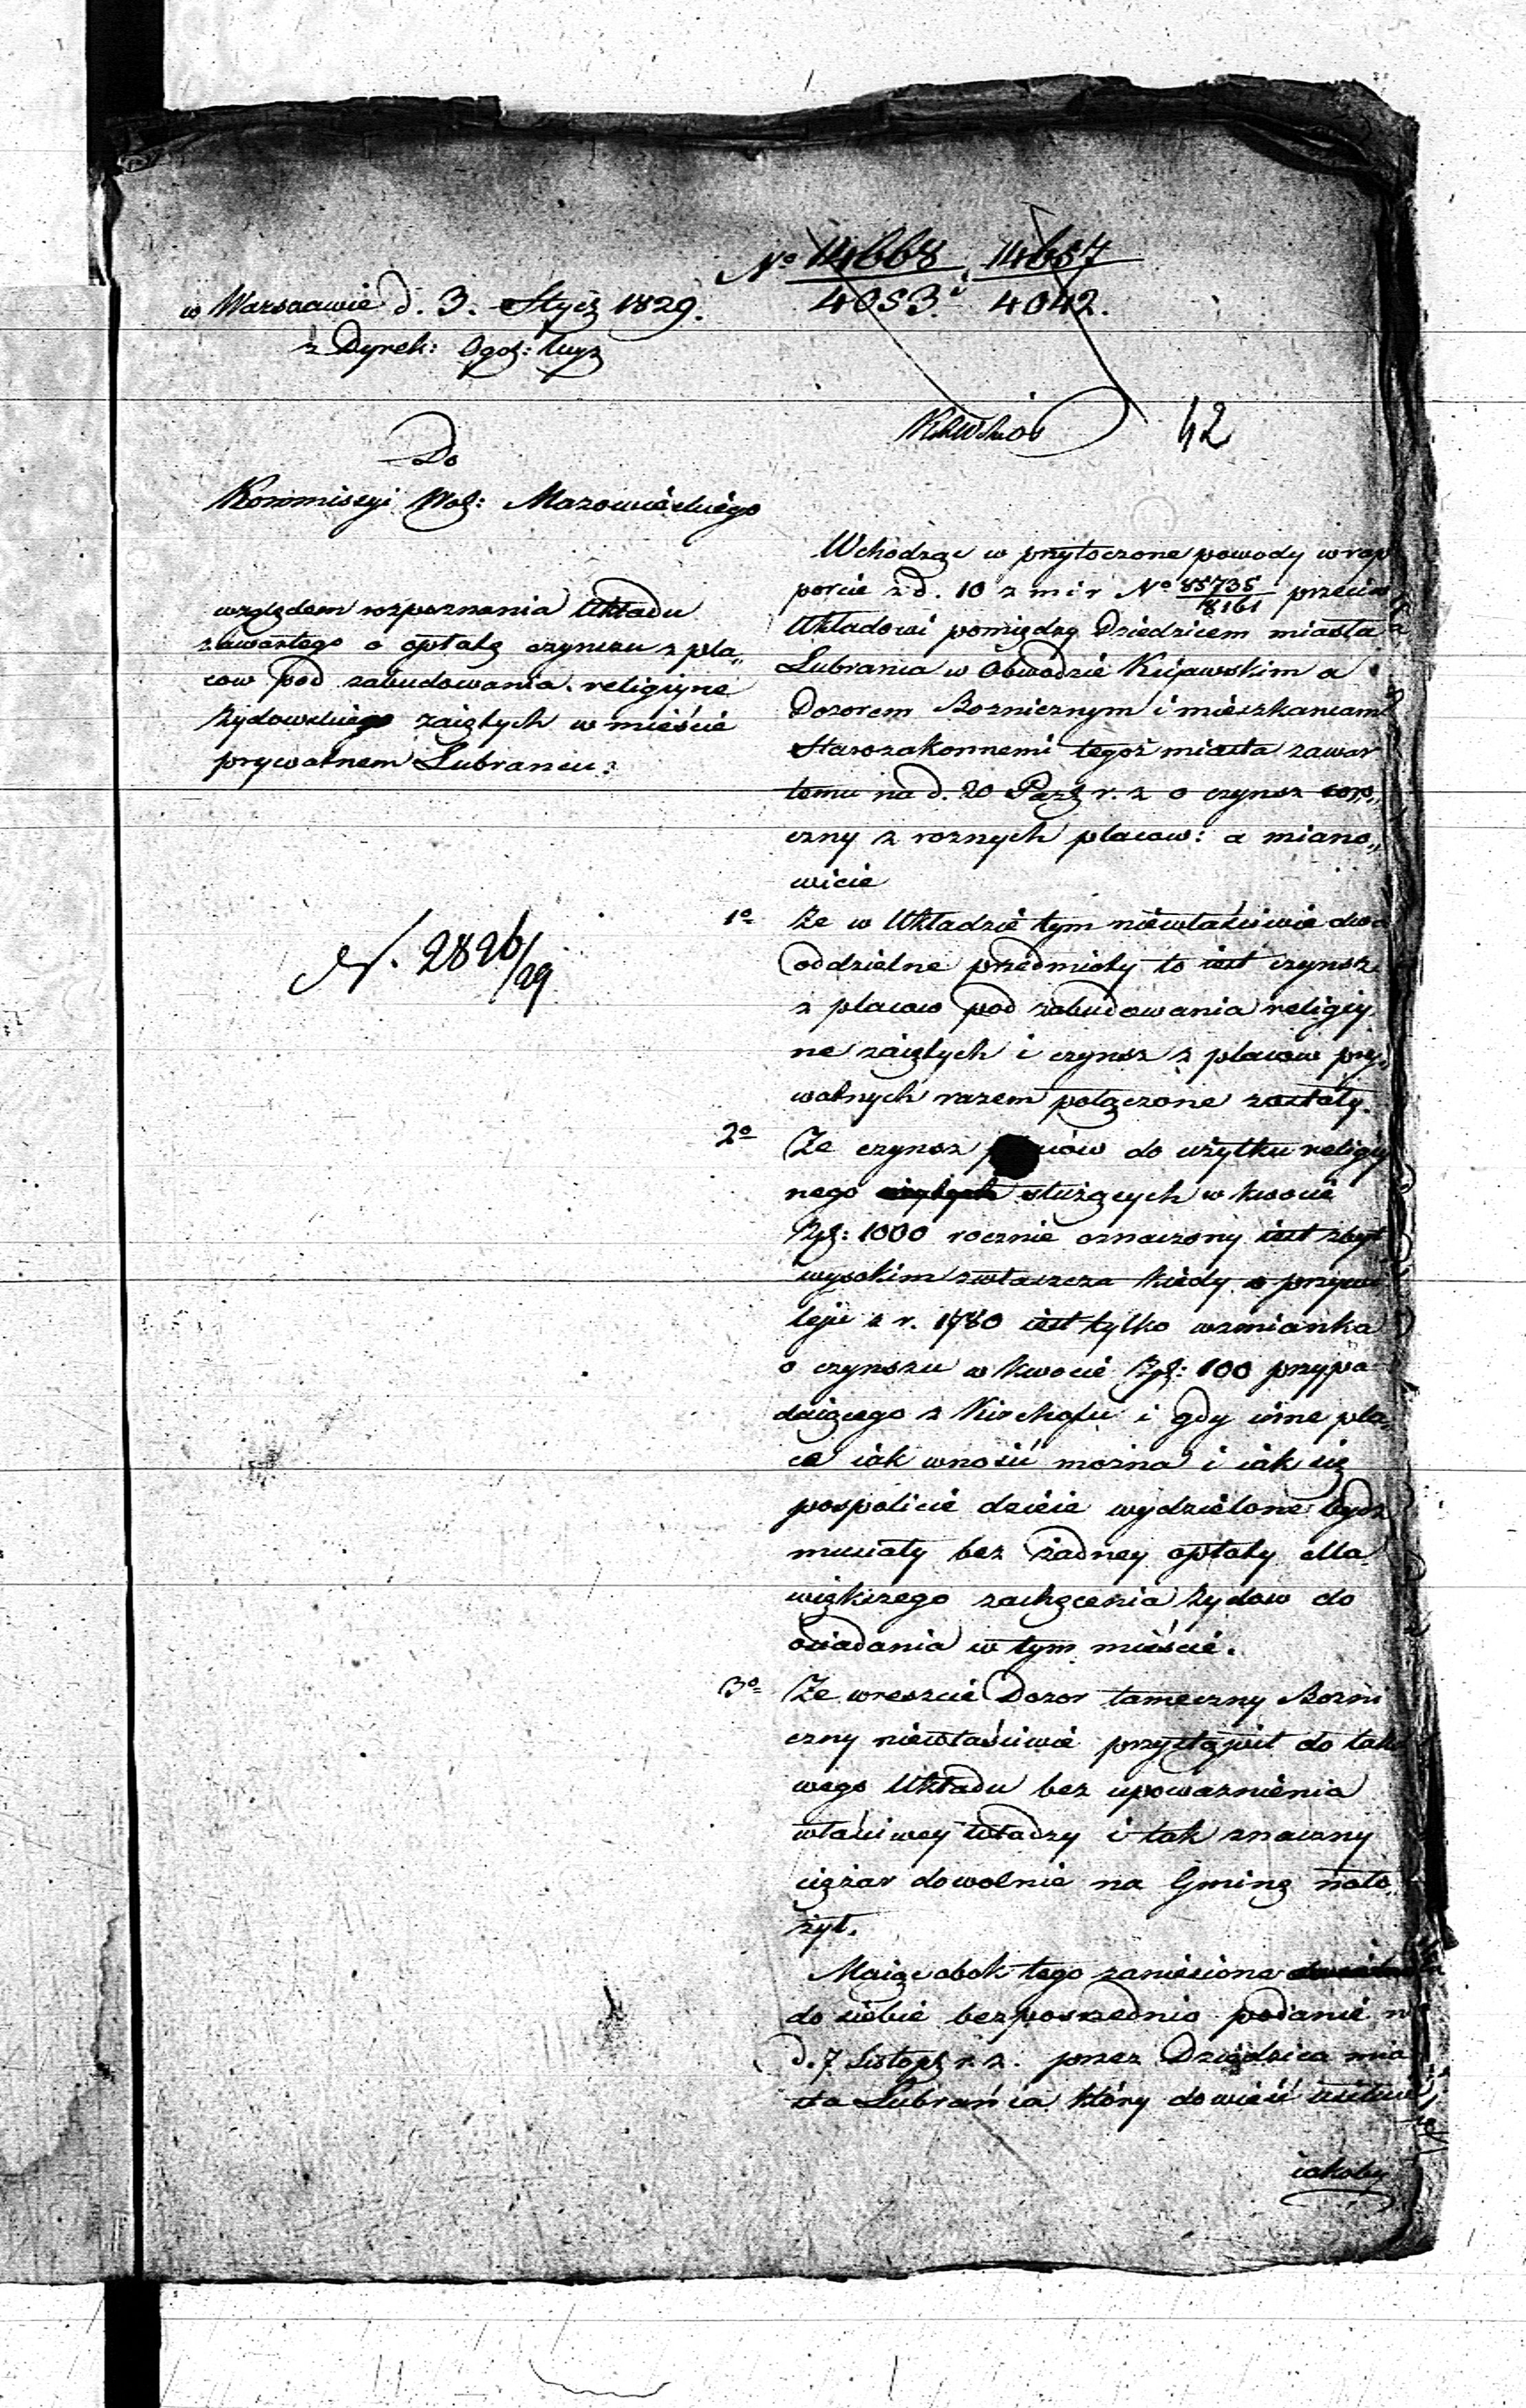 No 14668 / 4053. i 14657 / 4042.
w Warszawie d. 3. Stycz 1829.
z Dyrek: Ogol: Wyz
42
Do
Kommissyi Woj: Mazowieckiego
względem rozpoznania Układu
zawartego o opłatę czynszu z pla„
cow pod zabudowania religiyne
żydowskie zaiętych w mieście
prywatnem Lubraniu:
N. 2826/29
Wchodząc w przytoczone powody w rap
porcie z d. 10 z m i r No 85735 / 8161 przeciw
Układowi pomiędzy Dziedzicem miasta
Lubrania w Obwodzie Kujawskim a
Dozorem Boznicznym i mieszkancami
Starozakonnemi tegoż miasta zawar
temu na d. 20 Paźd r. z o czynsz coro„
czny z roznych placow: a miano„
wicie
1o Ze w Układzie tym niewłaściwie dwa
oddzielne przedmioty to iest czynsz
z placow pod zabudowania religiy
ne zaiętych i czynsz z placow pry„
watnych razem połączone zostały.
2o Ze czynsz do użytku religiy
nego służących w kwocie
Złp: 1000 rocznie oznaczony iest zbyt
wysokim zwłaszcza kiedy w przywi
leju z r. 1780 iest tylko wzmianka
o czynszu w kwocie Złp: 100 przypa
daiącego z Kirchofu i gdy inne pla„
ce iak wnosić można i iak się
pospolicie dzieie wydzielone bydź
musiały bez żadney opłaty dla
większego zachęcenia żydow do
osiadania w tym mieście.
3o Ze wreszcie Dozor tameczny Bozni
czny niewłaściwie przystąpił do tako
wego Układu bez upoważnienia
właściwey Władzy i tak znaczny
ciężar dowolnie na Gminę nało„
żył.
Maiąc obok tego zaniesione
do siebie bezpośrednio podanie
d. 7 Listopd r. z. przez Dziedzica mia
sta Lubrańca który dowieść usiłuie
iakoby